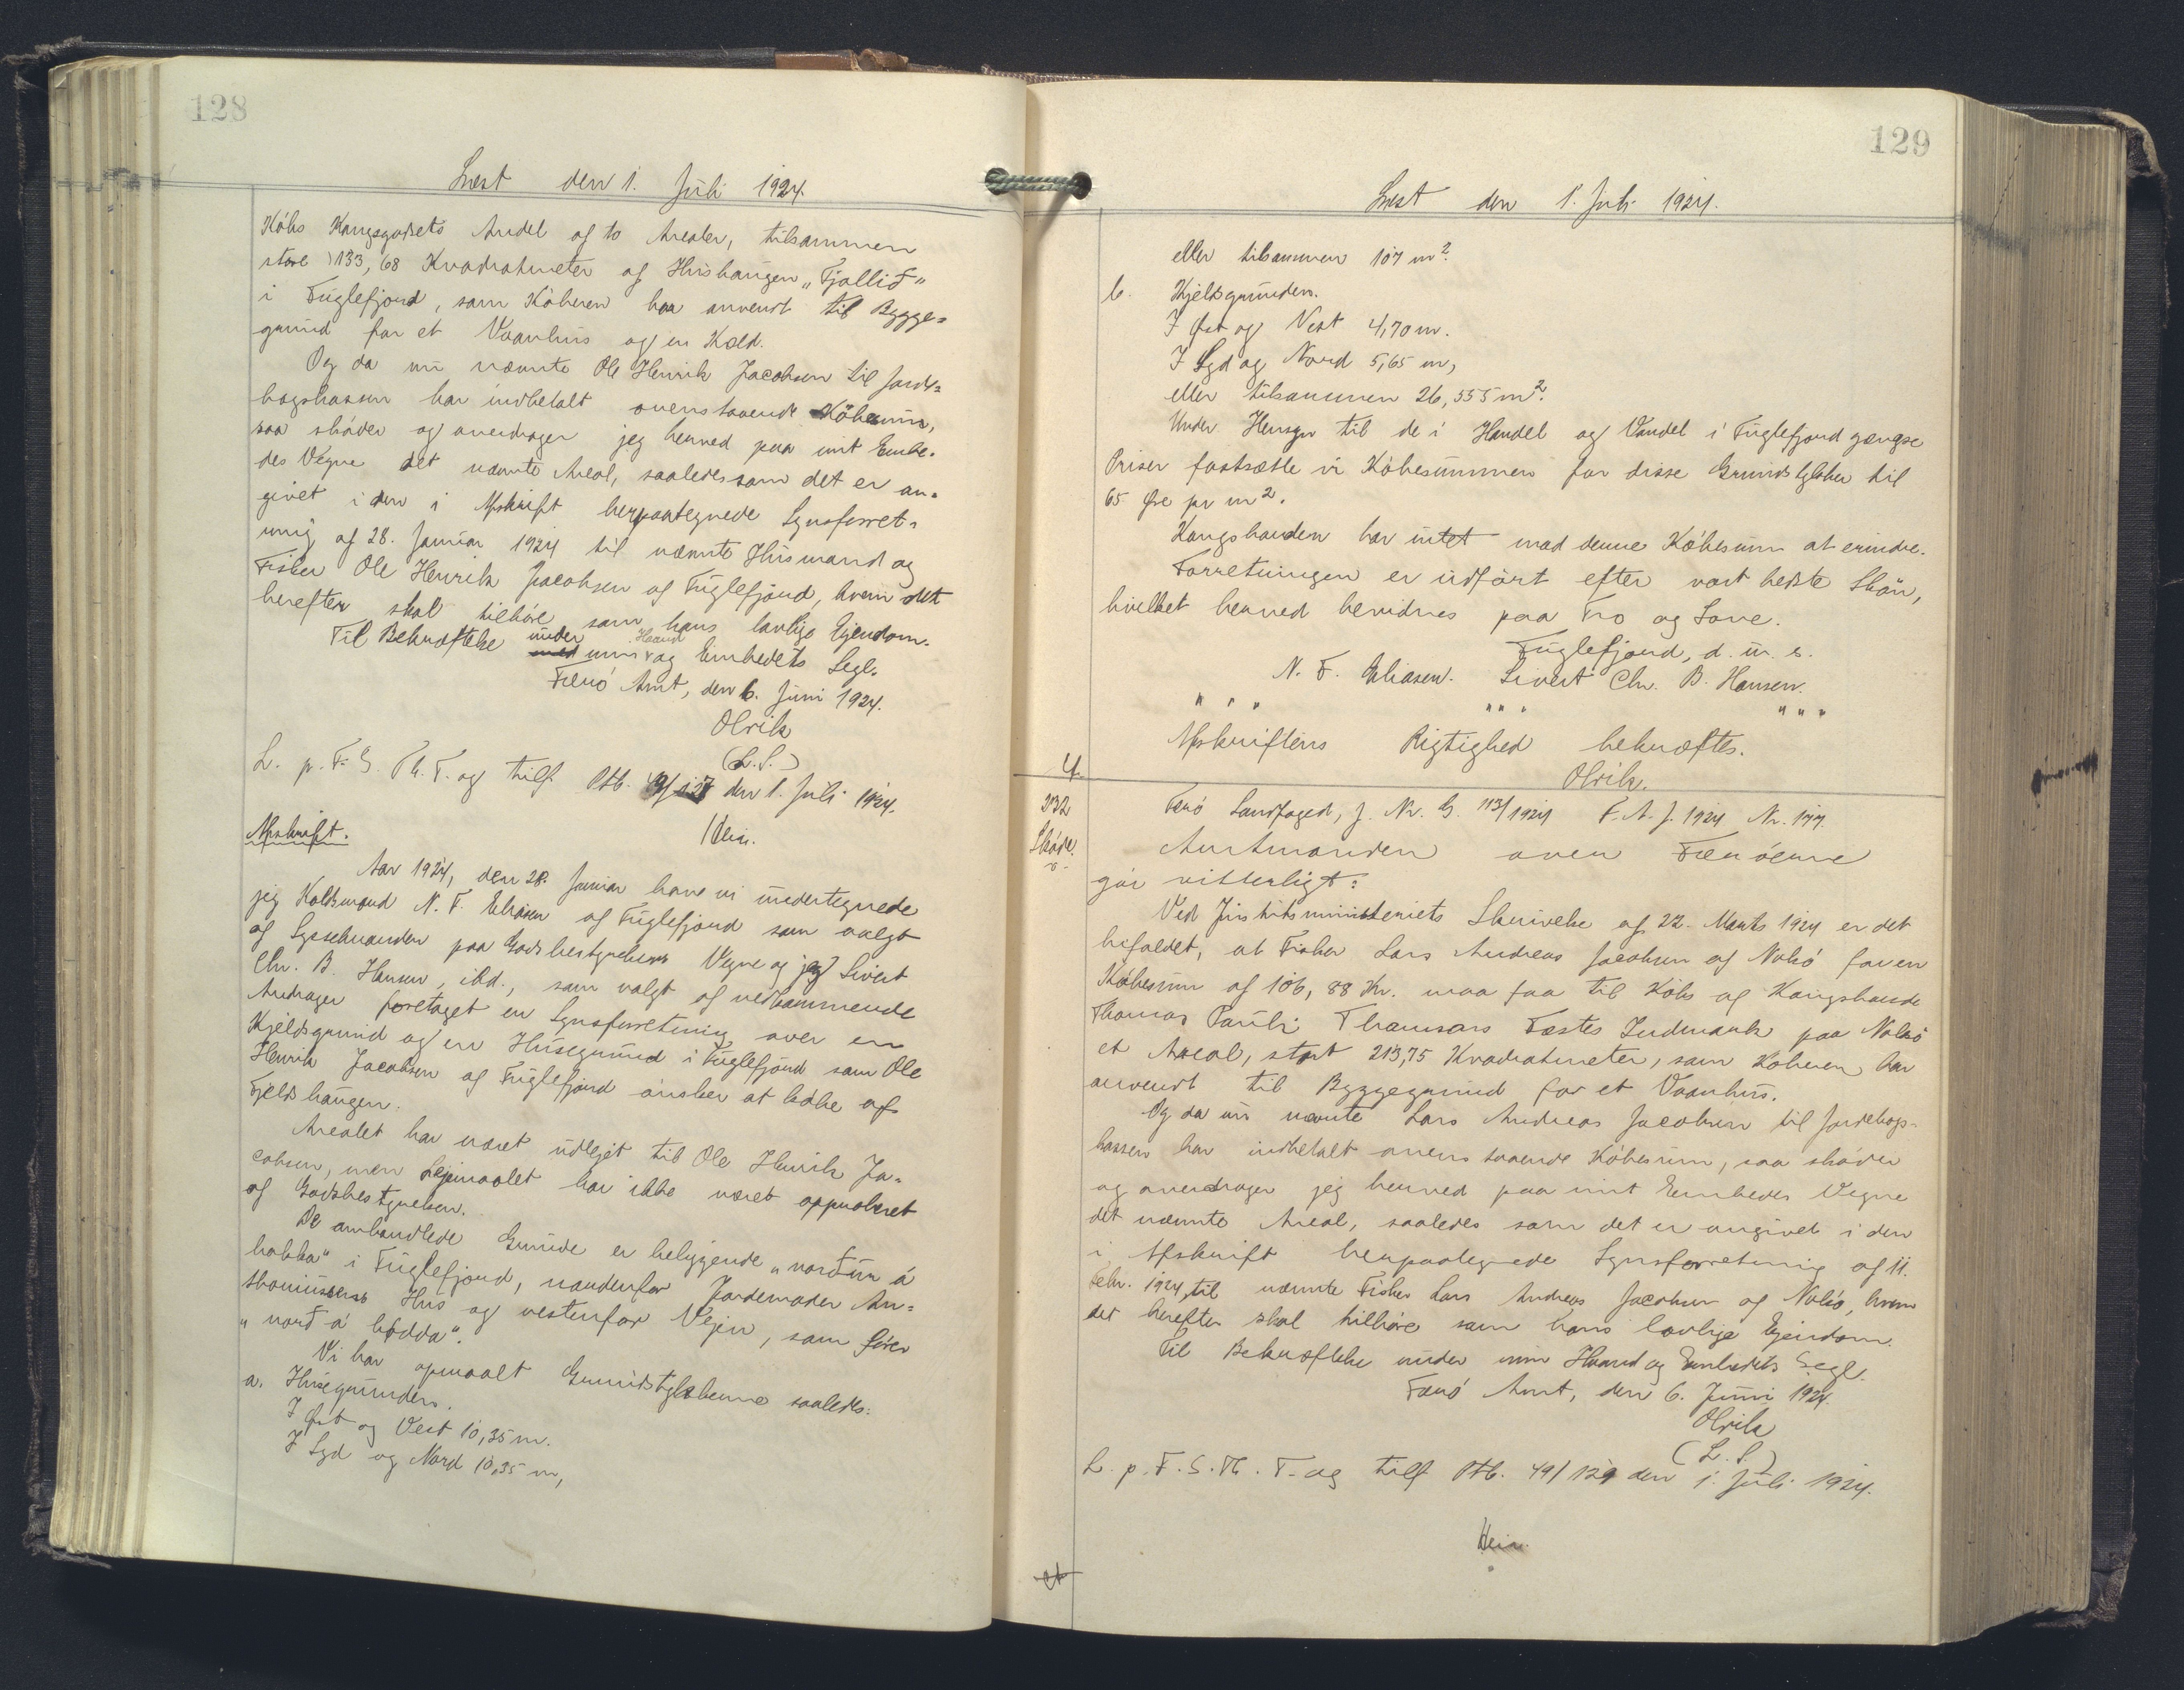 128
Læst den 1. Juli 1924.
Købs Kongsgodsets Andel af to Arealer, tilsammen
store 133,68 Kvadratmeter af Hushaugen „Fjallið“
i Fuglefjord, som Køberen har anvendt til Bygge=
grund for et Vaanhus og en Kæld.
Og da nu nævnte Ole Henrik Jacobsen til Jorde=
bogskassen har indbetalt ovenstaaende Købesum,
saa skøder og overdrager jeg herved paa mit Embe=
des Vegne det nævnte Areal, saaledes som det er an=
givet i den i Afskrift herpaategnede Synsforret=
ning af 28. Januar 1924 til nævnte Husmand og
Fisker Ole Henrik Jacobsen af Fuglefjord, hvem det
herefter skal tilhøre som hans lovlige Ejendom.
Til Bekræftelse under min Haand og Embedets Segl.
Færø Amt, den 6. Juni 1924.
Olrik
(L.S.)
L. p. F. S. Th. T. og tilf. Ptb. 49/127 den 1. Juli 1924.
Hein.
Afskrift.
Aar 1924, den 28. Januar have vi undertegnede
jeg Koldsmand N. F. Eliasen af Fuglefjord som valgt
af Sysselmanden paa Godsbestyrelsens Vegne og jeg Sivert
Chr. B. Hansen, ibd., som valgt af vedkommende
Andrager foretaget en Synsforretning over en
Kjeldsgrund og en Husegrund i Fuglefjord som Ole
Henrik Jacobsen af Fuglefjord ønsker at købe af
Fjeldshaugen.
Arealet har været udlejet til Ole Henrik Ja=
cobsen, men Lejemaalet har ikke været approberet
af Godsbestyrelsen.
De omhandlede Grunde er beliggende „norðuri á
bakka“ i Fuglefjord, nordenfor Jordemoder An=
thoniussens Hus og vestenfor Vejen, som fører
„norð á bødda“.
Vi har opmaalt Grundstykkerne saaledes:
a. Husegrunden.
I Øst og Vest 10,35 m.
I Syd og Nord 10,35 m,
129
Læst den 1. Juli 1924.
eller tilsammen 107 m².
b. Kjeldsgrunden.
I Øst og Vest 4,70 m.
I Syd og Nord 5,65 m,
eller tilsammen 26,555 m².
Under Hensyn til de i Handel og Vandel i Fuglefjord gængse
Priser fastsætte vi Købesummen for disse Grundstykker til
65 Øre pr m².
Kongsbonden har intet mod denne Købesum at erindre.
Forretningen er udført efter vort bedste Skøn,
hvilket herved bevidnes paa Tro og Love.
Fuglefjord, d. u. s.
N. F. Eliasen. Sivert Chr. B. Hansen.
" " " " " " " " "
Afskriftens Rigtighed bekræftes.
Olrik.
4
232 Færø Landfoged, J. Nr. G. 113/1924 F. A. J. 1924 Nr. 177.
Skøde. Amtmanden over Færøerne
gør vitterligt:
Ved Justitsministeriets Skrivelse af 22. Marts 1924 er det
bifaldet, at Fisker Lars Andreas Jacobsen af Nolsø for en
Købesum af 106,88 Kr. maa faa til Købs af Kongsbonde
Thomas Pauli Thomsens Fæstes Indmark paa Nolsø
et Areal, stort 213,75 Kvadratmeter, som Køberen har
anvendt til Byggegrund for et Vaanhus.
Og da nu nævnte Lars Andreas Jacobsen til Jordebogs=
kassen har indbetalt ovenstaaende Købesum, saa skøder
og overdrager jeg herved paa mit Embedes Vegne
det nævnte Areal, saaledes som det er angivet i den
i Afskrift herpaategnede Synsforretning af 11.
Febr. 1924, til nævnte Fisker Lars Andreas Jacobsen af Nolsø, hvem
det herefter skal tilhøre som hans lovlige Ejendom.
Til Bekræftelse under min Haand og Embedets Segl.
Færø Amt, den 6. Juni 1924.
Olrik
(L.S.)
L. p. F. S. Th. T. og tilf. Ptb. 49/129 den 1. Juli 1924.
Hein.